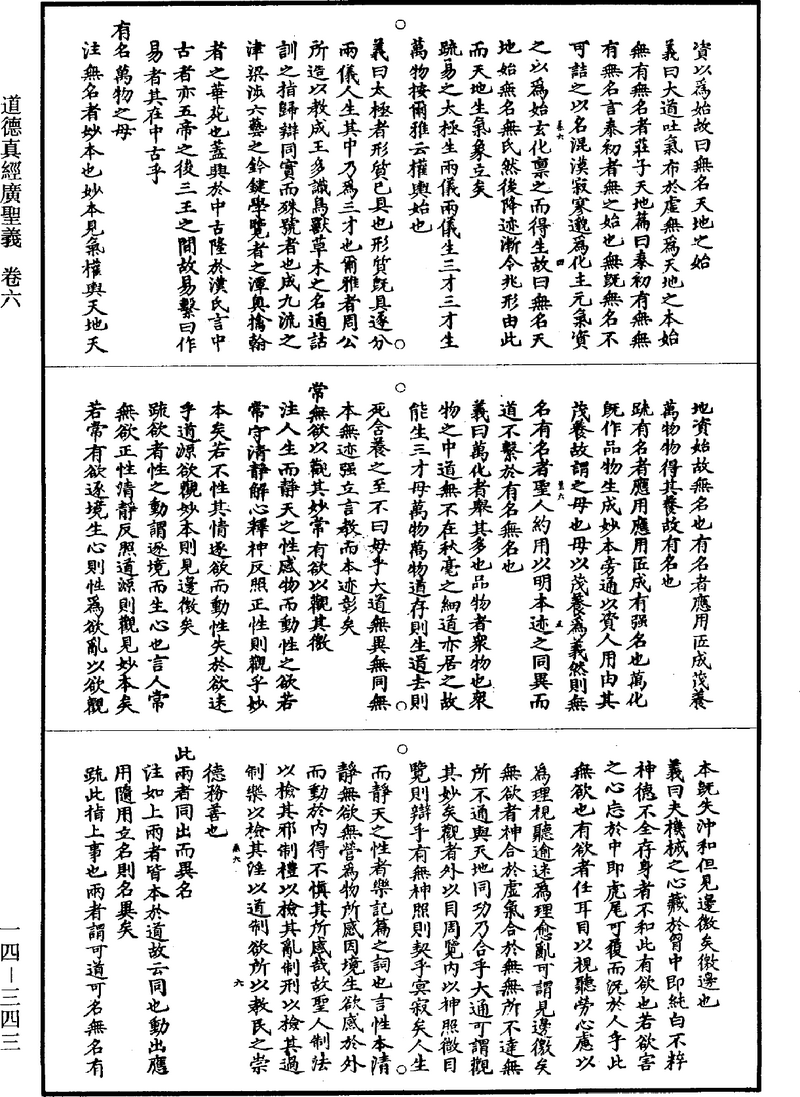 道德真經廣聖義　卷六
一四—三四三
資以為始故曰無名天地之始
義曰大道吐氣布於虛無為天地之本始
無有無名者莊子天地篇曰泰初有無無
有無名言泰初者無之始也無既無名不
可詰之以名混漠寂寥邈為化主元氣資
卷六　四
之以為始玄化稟之而得生故曰無名天
地始無名無氏然後降迹漸令兆形由此
而天地生氣象立矣
疏易之太極生兩儀兩儀生三才三才生
萬物按爾雅云權輿始也
義曰太極者形質已具也形質既具遂分
兩儀人生其中乃為三才也爾雅者周公
所造以教成王多識鳥獸草木之名通詁
訓之指歸辯同實而殊號者也成九流之
津梁涉六藝之鈐鍵學覽者之潭奧擒翰
者之華苑也蓋興於中古隆於漢氏言中
古者亦五帝之後三王之間故易繫曰作
易者其在中古乎
有名萬物之母
注無名者妙本也妙本見氣權輿天地天
地資始故無名也有名者應用匠成茂養
萬物物得其養故有名也
疏有名者應用應用匠成有强名也萬化
既作品物生成妙本旁通以資人用由其
茂養故謂之母也母以茂養為義然則無
卷六　五
名有名者聖人約用以明本迹之同異而
道不繫於有名無名也
義曰萬化者衆其多也品物者衆物也衆
物之中道無不在秋毫之細道亦居之故
能生三才母萬物萬物道存則生道去則
死含養之至不曰母乎大道無異無同無
本無迹强立言教而本迹彰矣
常無欲以觀其妙常有欲以觀其徼
注人生而静天之性感物而動性之欲若
常守清静解心釋神反照正性則觀乎妙
本矣若不性其情逐欲而動性失於欲迷
乎道源欲觀妙本則見邊徼矣
疏欲者性之動謂逐境而生心也言人常
無欲正性清静反照道源則觀見妙本矣
若常有欲逐境生心則性為欲亂以欲觀
本既失沖和但見邊徼矣徼邊也
義曰夫機械之心藏於胷中即純白不粹
神德不全存身者不和此有欲也若欲害
之心忘於中即虎尾可履而況於人乎此
無欲也有欲者任耳目以視聽勞心慮以
為理視聽逾迷為理愈亂可謂見邊徼矣
無欲者神合於虛氣合於無無所不達無
所不通與天地同功乃合乎大通可謂觀
其妙矣觀者外以目周覽內以神照徼目
覽則辯乎有無神照則契乎冥寂矣人生
而静天之性者樂記篇之詞也言性本清
静無欲無營為物所感因境生欲感於外
而動於內得不慎其所感哉故聖人制法
以檢其邪制禮以檢其亂制刑以檢其過
制樂以檢其淫以道制欲所以教民之崇
卷六　六
德務善也
此兩者同出而異名
注如上兩者皆本於道故云同也動出應
用隨用立名則名異矣
疏此指上事也兩者謂可道可名無名有